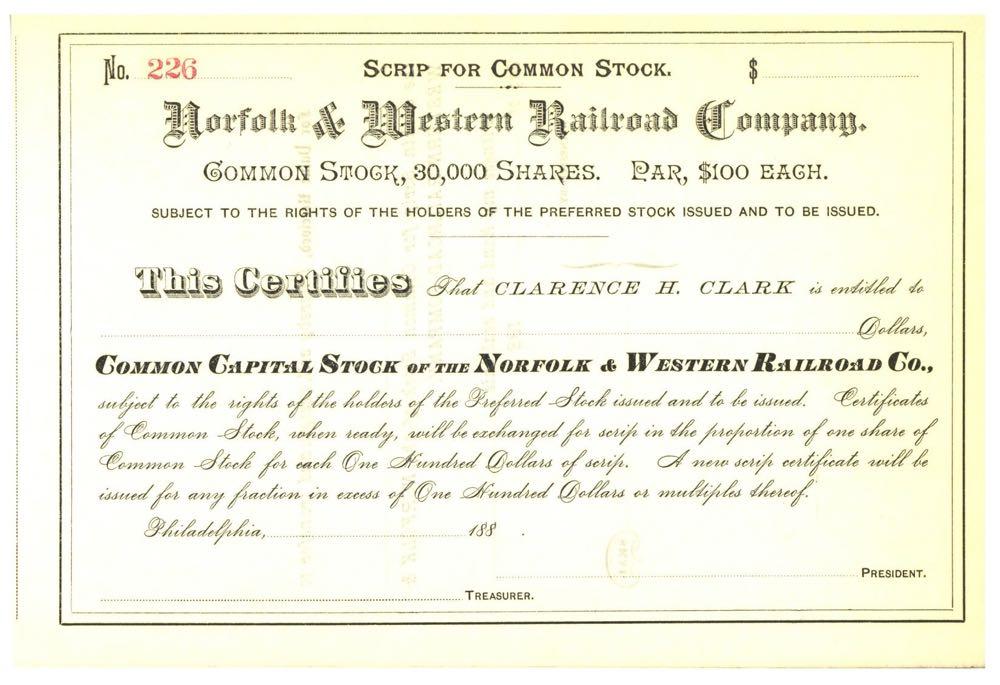 No. 226 SCRIP FOR COMMON STOCK. $
Norfolk & Western Railroad Company.
COMMON STOCK, 30,000 SHARES. PAR, $100 EACH.
SUBJECT TO THE RIGHTS OF THE HOLDERS OF THE PREFERRED STOCK ISSUED AND TO BE ISSUED.
This Certifies That CLARENCE H. CLARK is entitled to
Dollars,
COMMON CAPITAL STOCK OF THE NORFOLK & WESTERN RAILROAD CO.,
subject to the rights of the holders of the Preferred Stock issued and to be issued. Certificates
of Common Stock, when ready, will be exchanged for scrip in the proportion of one share of
Common Stock for each One Hundred Dollars of scrip. A new scrip certificate will be
issued for any fraction in excess of One Hundred Dollars or multiples thereof.
Philadelphia, 188 .
PRESIDENT.
TREASURER.